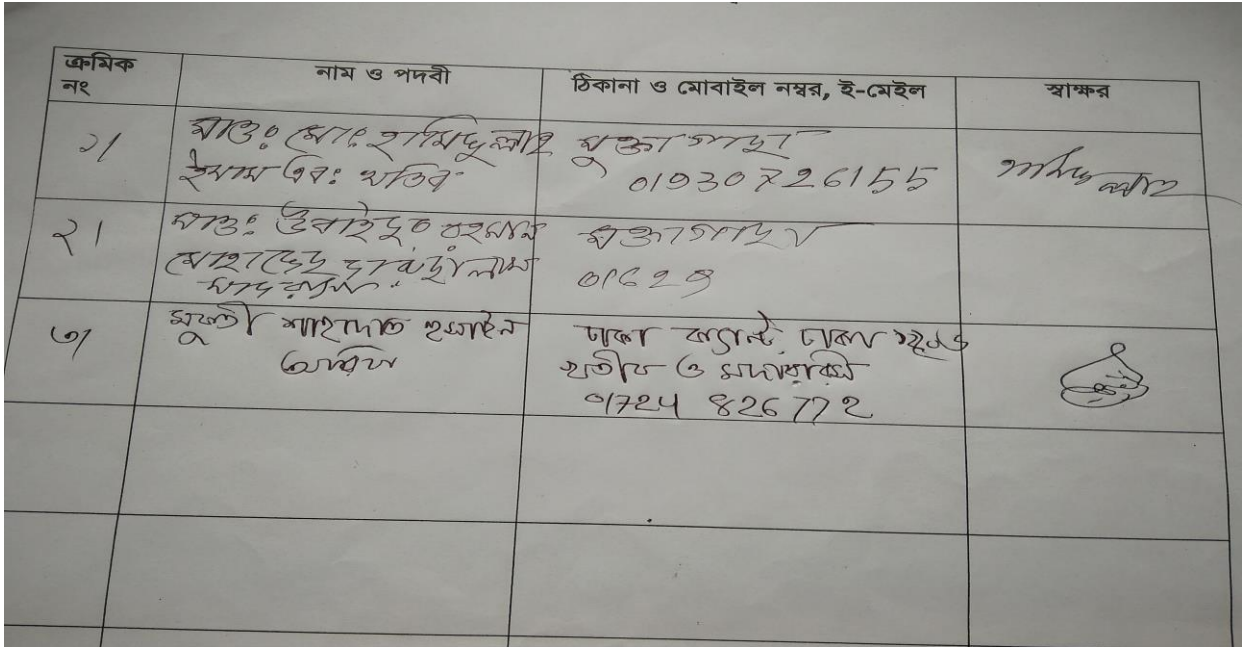 ক্রমিক নং
নাম ও পদবী
ঠিকানা ও মোবাইল নম্বর, ই-মেইল
স্বাক্ষর
১।
মাওঃ মোঃ হামিদুল্লাহ
ইমাম এবং খতিব
মুক্তাগাছা
01930726155
হামিদুল্লাহ
২।
মাওঃ উবাইদুর রহমান
মুক্তাগাছা
01629
৩।
মুফতী শাহাদাত হুসাইন
ঢাকা ক্যান্ট, ঢাকা ১২০৬
খতীব ও
01724 826772